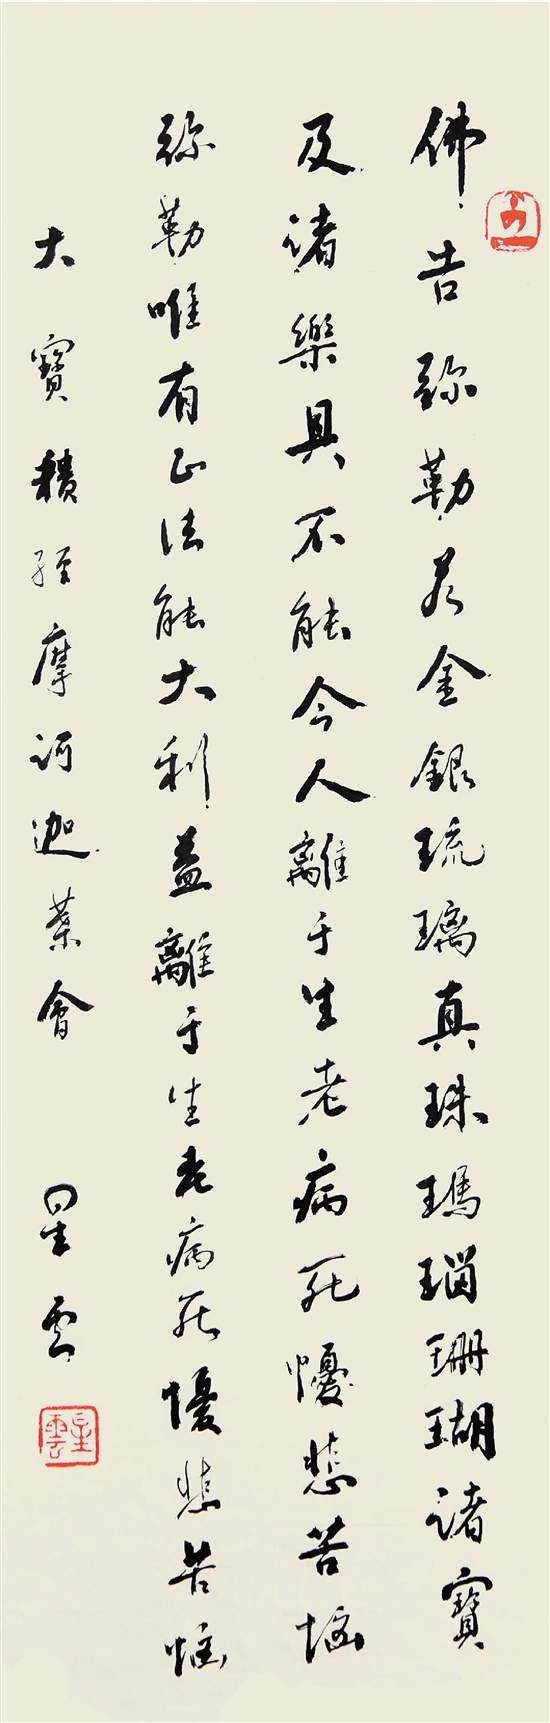 佛告彌勒若金銀琉璃真珠瑪瑙珊瑚諸寶
及諸樂具不能令人離于生老病死懮悲苦惱
彌勒唯有正法能大利益離于生老病死懮悲苦惱
大寶積經摩訶迦葉會 星雲
星雲